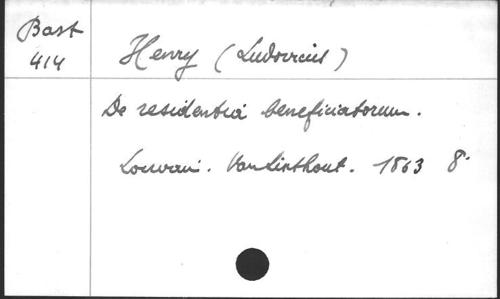 Bast
414
Henry (Ludovicus)
De residentiá beneficiatorum.
Louvani. Vanlinthout. 1863 8°